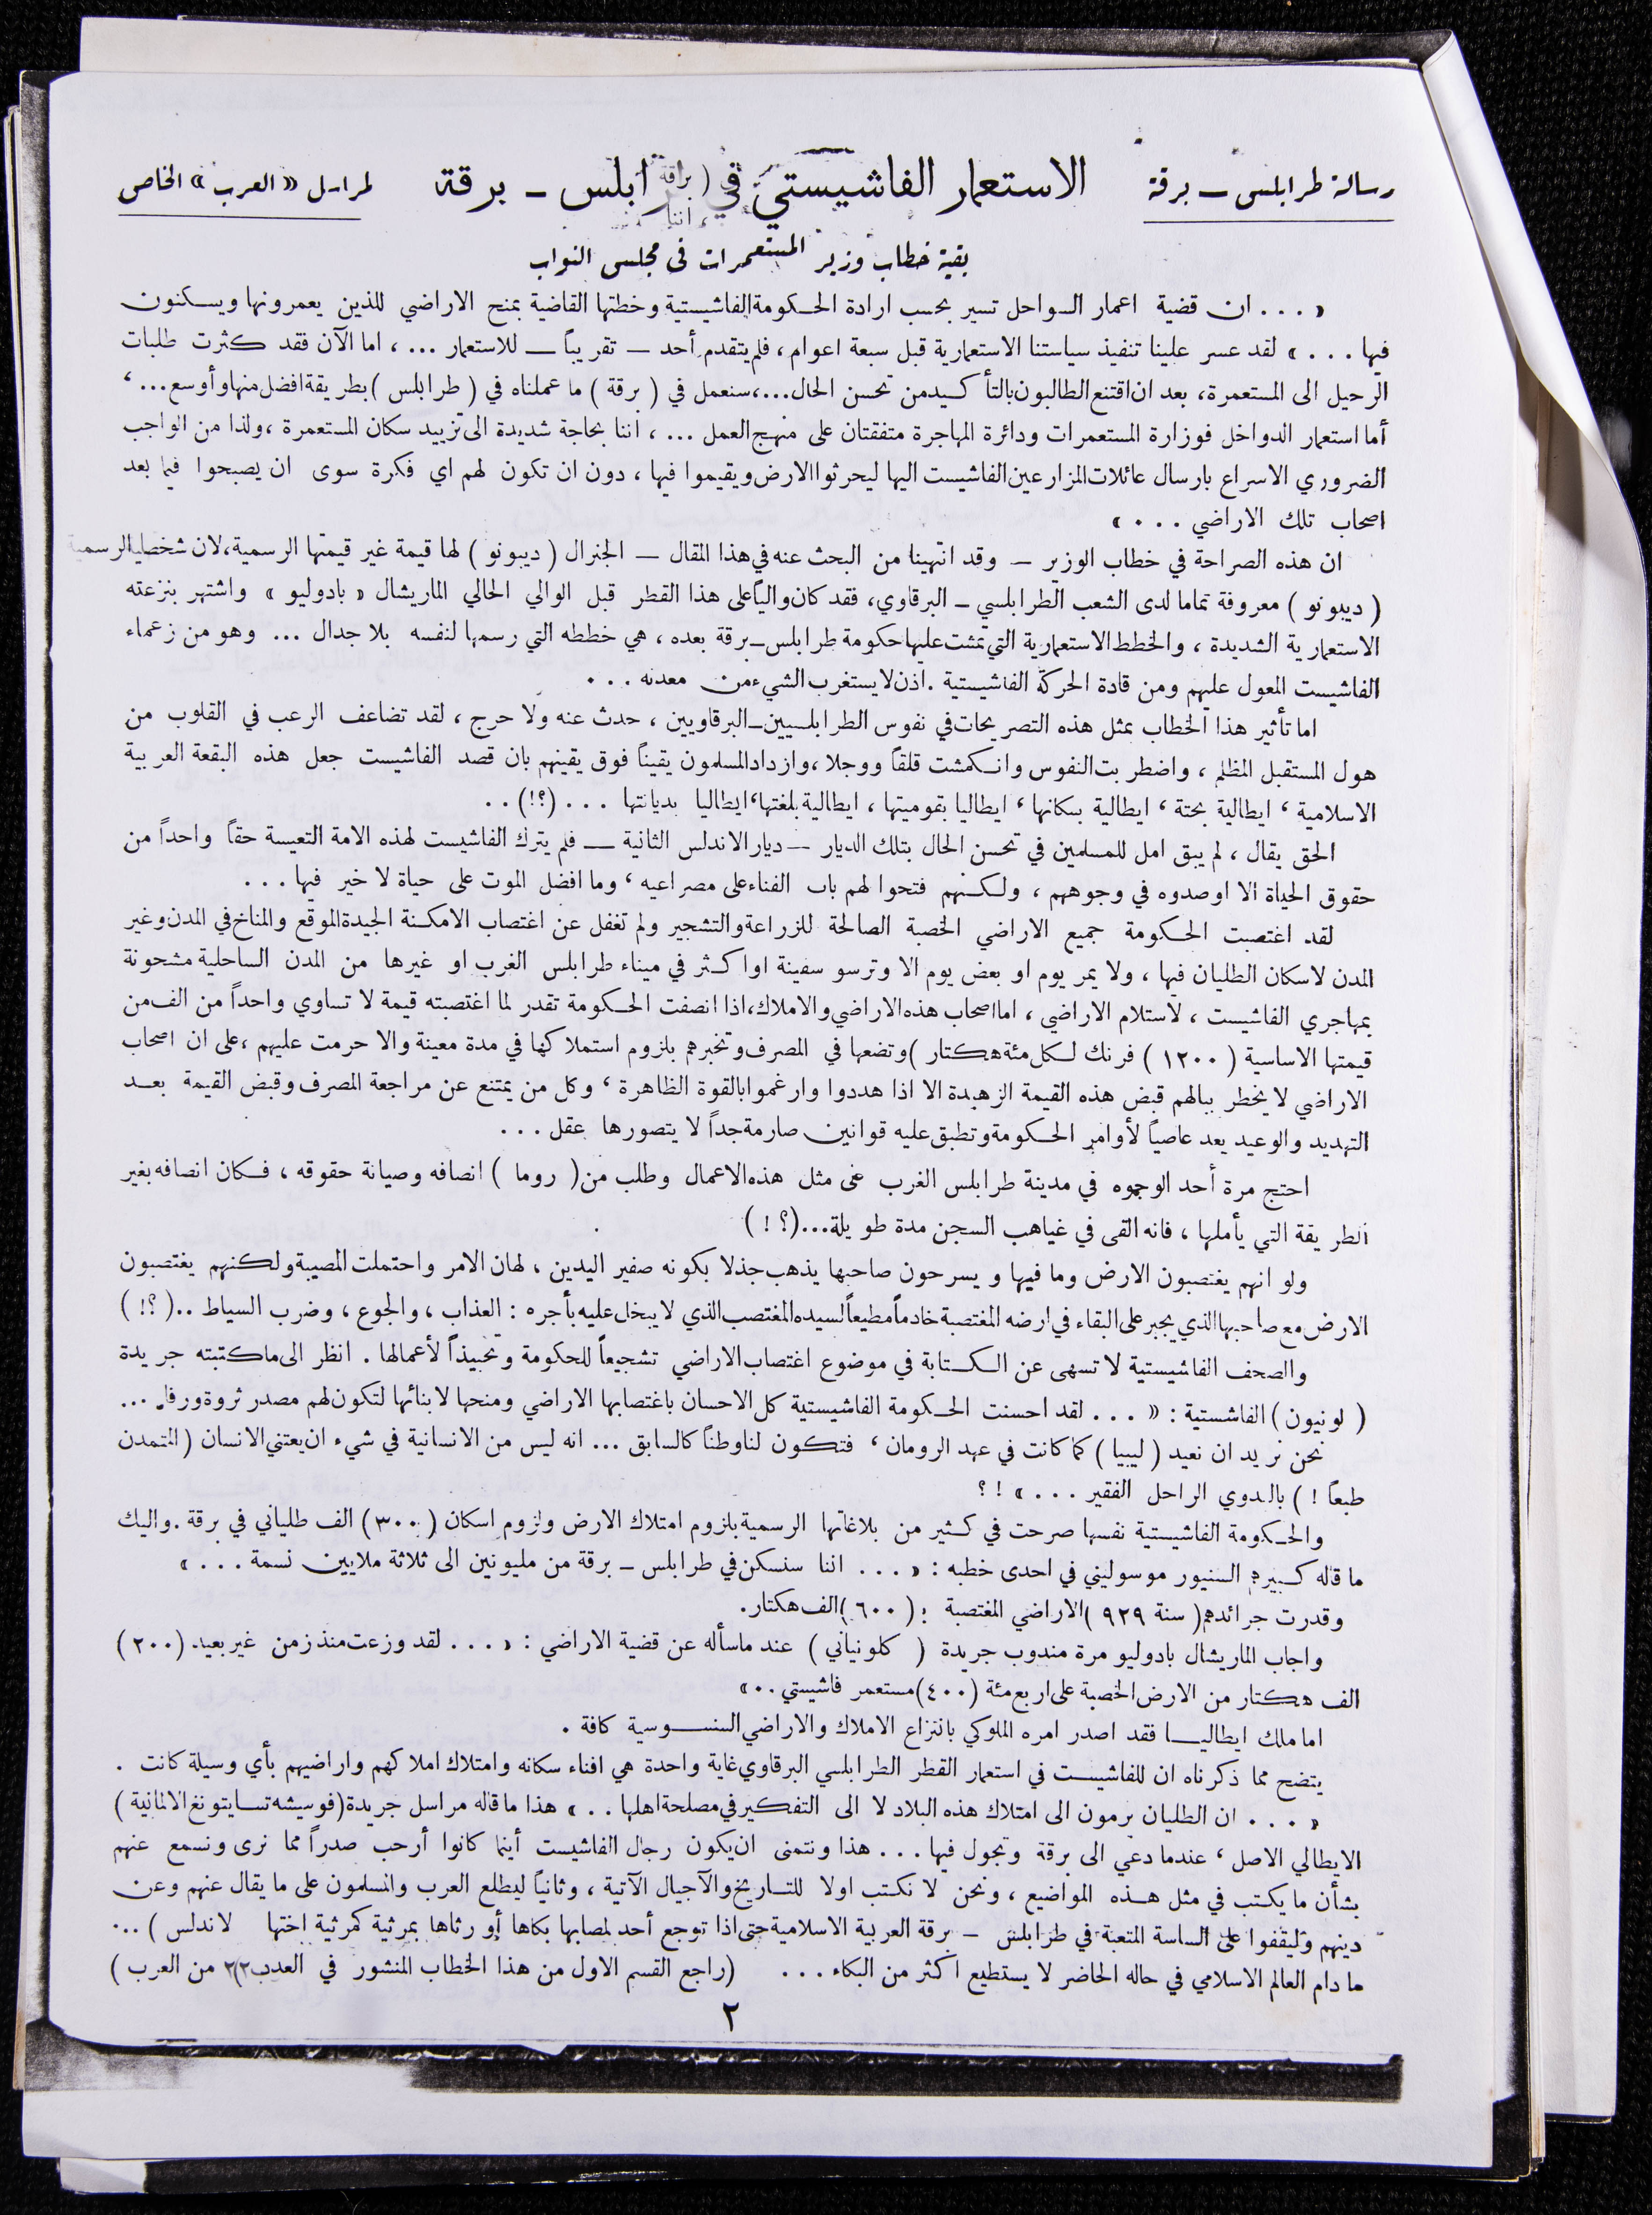 رسالة طرابلس — برقة
الاستعمار الفاشيستي في طرابلس - برقة
لمراسل «العرب» الخاص
بقية خطاب وزير المستعمرات في مجلس النواب
« ... ان قضية اعمار السواحل تسير بحسب ارادة الحكومة الفاشيستية وخطتها القاضية بمنح الاراضي للذين يعمرونها ويسكنون
فيها ... » لقد عسر علينا تنفيذ سياستنا الاستعمارية قبل سبعة اعوام ، فلم يتقدم أحد — تقريباً — للاستعمار ... ، اما الآن فقد كثرت طلبات
الرحيل الى المستعمرة، بعد ان اقتنع الطالبون بالتأكيد من تحسن الحال...، سنعمل في ( برقة ) ما عملناه في ( طرابلس ) بطريقة افضل منها وأوسع... ،
أما استعمار الدواخل فوزارة المستعمرات ودائرة المهاجرة متفقتان على منهج العمل ... ، اننا بحاجة شديدة الى تزييد سكان المستعمرة ، ولذا من الواجب
الضروري الاسراع بارسال عائلات المزارعين الفاشيست اليها ليحرثوا الارض ويقيموا فيها ، دون ان تكون لهم اي فكرة سوى ان يصبحوا فيما بعد
اصحاب تلك الاراضي ... »
ان هذه الصراحة في خطاب الوزير — وقد انتهينا من البحث عنه في هذا المقال — الجنرال ( ديبونو ) لها قيمة غير قيمتها الرسمية، لان شخصية الرسمية
( ديبونو ) معروفة تماما لدى الشعب الطرابلسي - البرقاوي، فقد كان والياً على هذا القطر قبل الوالي الحالي الماريشال « بادوليو » واشتهر بنزعته
الاستعمارية الشديدة ، والخطط الاستعمارية التي تمشت عليها حكومة طرابلس-برقة بعده ، هي خططه التي رسمها لنفسه بلا جدال ... وهو من زعماء
الفاشيست المعول عليهم ومن قادة الحركة الفاشيستية . اذن لا يستغرب الشيء من معدنه ...
اما تأثير هذا الخطاب بمثل هذه التصريحات في نفوس الطرابلسيين-البرقاويين ، حدث عنه ولا حرج ، لقد تضاعف الرعب في القلوب من
هول المستقبل المظلم ، واضطربت النفوس وانكمشت قلقاً ووجلا ، وازداد المسلمون يقيناً فوق يقينهم بان قصد الفاشيست جعل هذه البقعة العربية
الاسلامية ، ايطالية بحتة ، ايطالية بسكانها ، ايطاليا بقوميتها ، ايطالية بلغتها ، ايطاليا بديانتها ... (؟!) ..
الحق يقال ، لم يبق امل للمسلمين في تحسن الحال بتلك الديار — ديار الاندلس الثانية — فلم يترك الفاشيست لهذه الامة التعيسة حقاً واحداً من
حقوق الحياة الا اوصدوه في وجوههم ، ولكنهم فتحوا لهم باب الفناء على مصراعيه ، وما افضل الموت على حياة لا خير فيها ...
لقد اغتصبت الحكومة جميع الاراضي الخصبة الصالحة للزراعة والتشجير ولم تغفل عن اغتصاب الامكنة الجيدة الموقع والمناخ في المدن وغير
المدن لاسكان الطليان فيها ، ولا يمر يوم او بعض يوم الا وترسو سفينة او اكثر في ميناء طرابلس الغرب او غيرها من المدن الساحلية مشحونة
بمهاجري الفاشيست ، لاستلام الاراضي ، اما اصحاب هذه الاراضي والاملاك، اذا انصفت الحكومة تقدر لما اغتصبته قيمة لا تساوي واحداً من الف من
قيمتها الاساسية ( ١٢٠٠ ) فرنك لكل مئة هكتار ) وتضعها في المصرف وتخبرهم بلزوم استملاكها في مدة معينة والا حرمت عليهم ، على ان اصحاب
الاراضي لا يخطر ببالهم قبض هذه القيمة الزهيدة الا اذا هددوا وارغموا بالقوة الظاهرة ، وكل من يمتنع عن مراجعة المصرف وقبض القيمة بعد
التهديد والوعيد يعد عاصياً لأوامر الحكومة وتطبق عليه قوانين صارمة جداً لا يتصورها عقل ...
احتج مرة أحد الوجوه في مدينة طرابلس الغرب على مثل هذه الاعمال وطلب من ( روما ) انصافه وصيانة حقوقه ، فكان انصافه بغير
الطريقة التي يأملها ، فانه القى في غياهب السجن مدة طويلة...(؟ ! )
ولو انهم يغتصبون الارض وما فيها ويسرحون صاحبها يذهب جذلا بكونه صفير اليدين ، لهان الامر واحتملت المصيبة ولكنهم يغتصبون
الارض مع صاحبها الذي يجبر على البقاء في ارضه المغتصبة خادماً مطيعاً لسيده المغتصب الذي لا يبخل عليه بأجره : العذاب ، والجوع ، وضرب السياط ..( ؟! )
والصحف الفاشيستية لا تسهى عن الكتابة في موضوع اغتصاب الاراضي تشجيعاً للحكومة وتحبيذاً لأعمالها . انظر الى ما كتبته جريدة
( لونيون ) الفاشستية : « ... لقد احسنت الحكومة الفاشيستية كل الاحسان باغتصابها الاراضي ومنحها لابنائها لتكون لهم مصدر ثروة ورفاه ...
نحن نريد ان نعيد ( ليبيا ) كما كانت في عهد الرومان ، فتكون لنا وطناً كالسابق ... انه ليس من الانسانية في شيء ان يعتني الانسان ( المتمدن
طبعاً ! ) بالبدوي الراحل الفقير ... » ! ؟
والحكومة الفاشيستية نفسها صرحت في كثير من بلاغاتها الرسمية بلزوم امتلاك الارض ولزوم اسكان ( ٣٠٠ ) الف طلياني في برقة . واليك
ما قاله كبيرهم السنيور موسوليني في احدى خطبه : « ... اننا سنسكن في طرابلس - برقة من مليونين الى ثلاثة ملايين نسمة ... »
وقدرت جرائدهم ( سنة ٩٢٩ ) الاراضي المغتصبة : ( ٦٠٠ ) الف هكتار.
واجاب الماريشال بادوليو مرة مندوب جريدة ( كلونياني ) عند ما سأله عن قضية الاراضي : « ... لقد وزعت منذ زمن غير بعيد (٢٠٠)
الف هكتار من الارض الخصبة على اربع مئة (٤٠٠) مستعمر فاشيستي .. »
اما ملك ايطاليا فقد اصدر امره الملوكي بانتزاع الاملاك والاراضي السنوسية كافة .
يتضح مما ذكرناه ان للفاشيست في استعمار القطر الطرابلسي البرقاوي غاية واحدة هي افناء سكانه وامتلاك املاكهم واراضيهم بأي وسيلة كانت .
« ... ان الطليان يرمون الى امتلاك هذه البلاد لا الى التفكير في مصلحة اهلها .. » هذا ما قاله مراسل جريدة (فوسيشه تسايتونغ الالمانية )
الايطالي الاصل ، عندما دعي الى برقة وتجول فيها ... هذا ونتمنى ان يكون رجال الفاشيست أينما كانوا أرحب صدراً مما نرى ونسمع عنهم
بشأن ما يكتب في مثل هذه المواضيع ، ونحن لا نكتب اولا للتاريخ والآجيال الآتية ، وثانياً ليطلع العرب والمسلمون على ما يقال عنهم وعن
دينهم وليقفوا على الساسة المتعبة في طرابلس - برقة العربية الاسلامية حتى اذا توجع أحد لمصابها بكاها أو رثاها بمرثية كمرثية اختها لاندلس ) ...
ما دام العالم الاسلامي في حاله الحاضر لا يستطيع اكثر من البكاء ... (راجع القسم الاول من هذا الخطاب المنشور في العدد من العرب )
٢